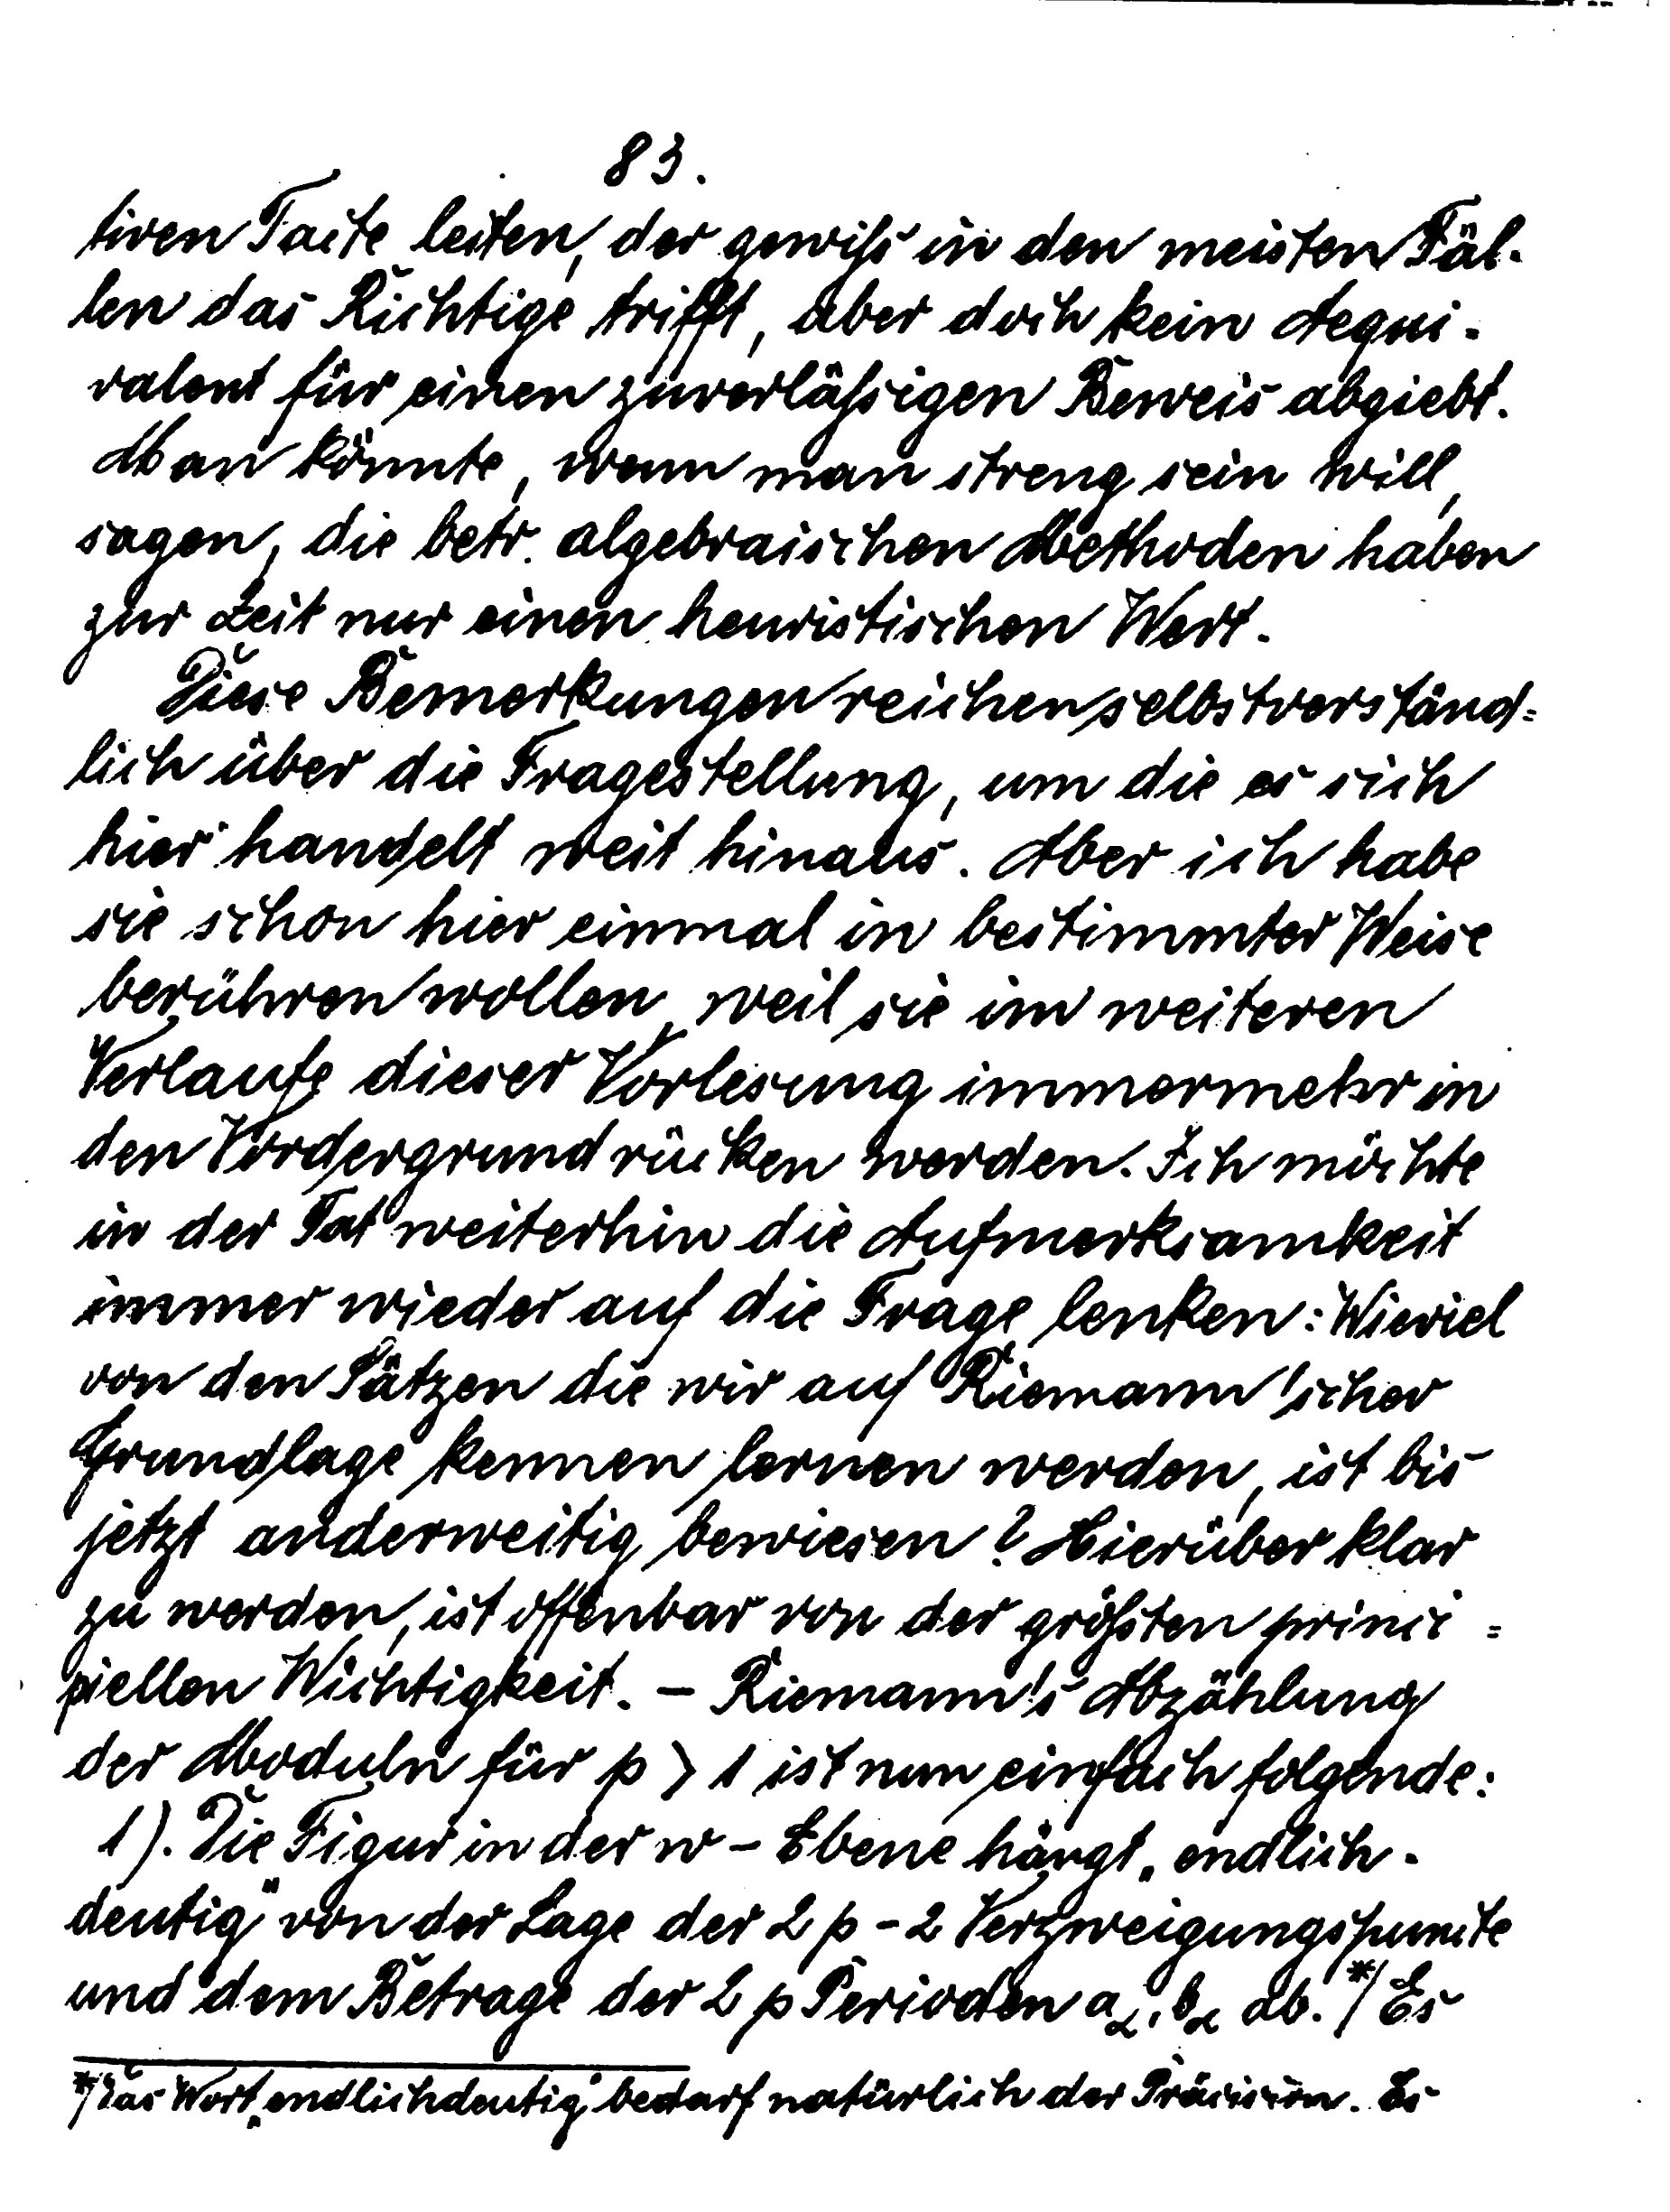 83.
tiven Tacte leiten, der gewiß in den meisten Fäl-
len das Richtige trifft, aber doch kein Aequi-
valent für einen zuverläßigen Beweis abgiebt.
Man könnte, wenn man streng sein will,
sagen, die betr. algebraischen Methoden haben
zur Zeit nur einen heuristischen Wert.
Diese Bemerkungen reichen selbstverständ=
lich über die Fragestellung, um die es sich
hier handelt weit hinaus. Aber ich habe
sie schon hier einmal in bestimmter Weise
berühren wollen, weil sie im weiteren
Verlaufe dieser Vorlesung immermehr in
den Vordergrund rücken werden. Ich möchte
in der Tat weiterhin die Aufmerksamkeit
immer wieder auf die Frage lenken: Wieviel
von den Sätzen die wir auf Riemann'scher
Grundlage kennen lernen werden, ist bis
jetzt anderweitig bewiesen? Hierüber klar
zu werden, ist offenbar von der größten princi=
piellen Wichtigkeit. – Riemann's Abzählung
der Moduln für p > 1 ist nun einfach folgende:
1). Die Figur in der w – Ebene hängt „endlich-
deutig" von der Lage der 2p-2 Verzweigungspuncte
und dem Betrage der 2p Perioden a_α, b_α ab.*/ Es
*/ Das Wort „endlichdeutig" bedarf natürlich der Präcision. Es